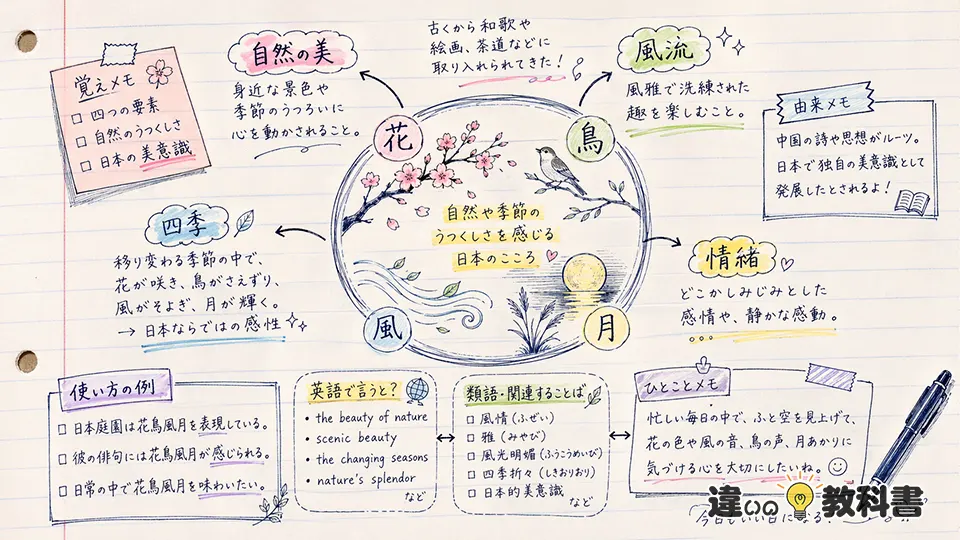 古くから和歌や
絵画、茶道などに
取り入れられてきた！
覚えメモ
□ 四つの要素
□ 自然のうつくしさ
□ 日本の美意識
自然の美
身近な景色や
季節のうつろいに
心を動かされること。
風流
風雅で洗練された
趣を楽しむこと。
由来メモ
中国の詩や思想がルーツ。
日本で独自の美意識として
発展したとされるよ！
花
鳥
自然や季節の
うつくしさを感じる
日本のこころ
風
月
四季
移り変わる季節の中で、
花が咲き、鳥がさえずり、
風がそよぎ、月が輝く。
→ 日本ならではの感性
情緒
どこかしみじみとした
感情や、静かな感動。
使い方の例
□ 日本庭園は花鳥風月を表現している。
□ 彼の俳句には花鳥風月が感じられる。
□ 日常の中で花鳥風月を味わいたい。
英語で言うと？
• the beauty of nature
• scenic beauty
• the changing seasons
• nature's splendor
など
類語・関連することば
□ 風情（ふぜい）
□ 雅（みやび）
□ 風光明媚（ふうこうめいび）
□ 四季折々（しきおりおり）
□ 日本的美意識
など
ひとことメモ
忙しい毎日の中で、ふと空を見上げて、
花の色や風の音、鳥の声、月あかりに
気づける心を大切にしたいね。
違いの教科書